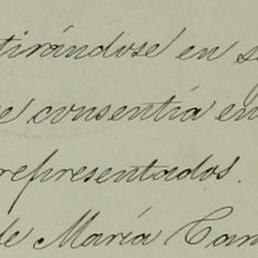 tirándose en s
e consentía en
representados.
de María Cam